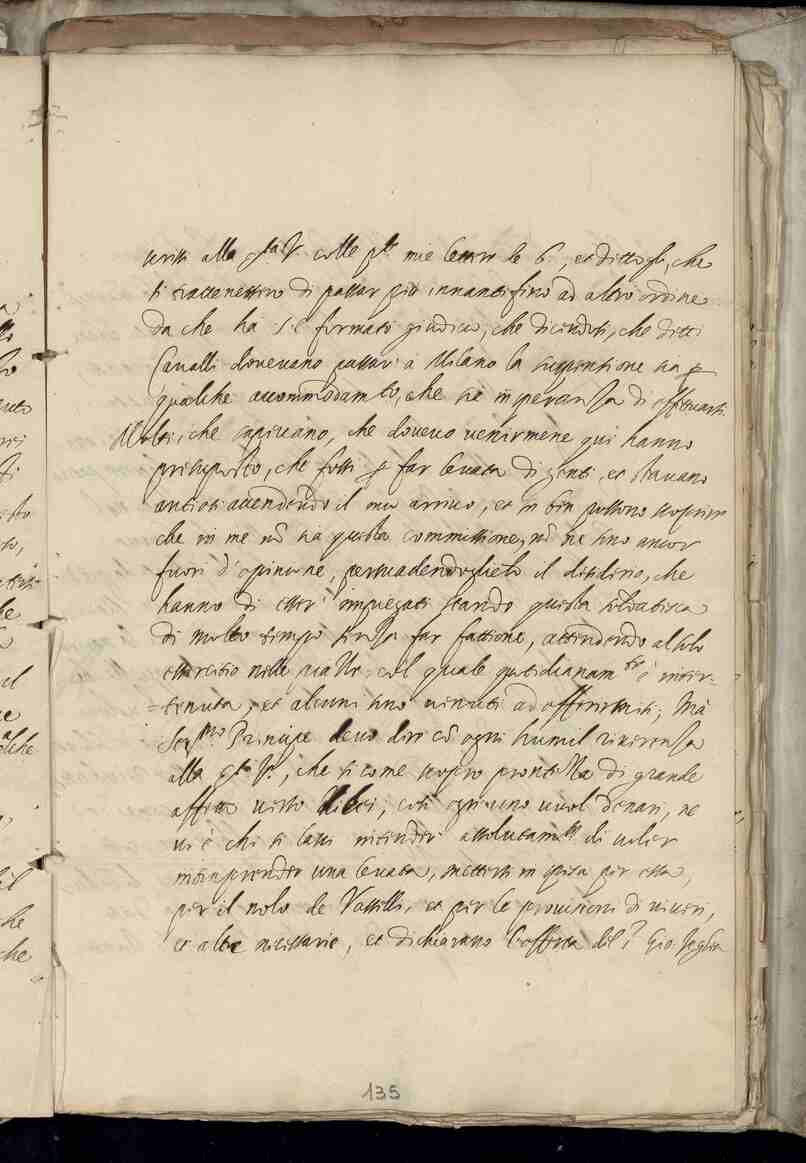 scritti alla Ser.tà V. colle p.te mie lettere le 6., et dittogli, che
si trattenessero di passar più innanti fino ad altro ordine
da che ha S. E. formato giudicio, che dicendosi, che detti
Cavalli dovevano passar à Milano la supension sia p
qualche accommodam.to, che sia in speranza di effettuarsi.
Molti, che sapivano, che dovevo venirmene qui hanno
presuposto, che fosse p far levata di genti, et stavano
antiosi attendendo il mio arrivo, et se ben possono scoprire
che in me nõ sia questa commissione, nõ ne sono ancor
fuori d'opinione, persuadendoglielo il desiderio, che
hanno di esser impiegati stando questa soldatesca
di molto tempo senza far fattione, attendendo al solo
essercitio nelle col quale quotidianam.te è inter=
=tenuta, et alcuni sono venuti ad offerirsi; Mà
Ser.mo Principe devo dire cõ ogni humil riverenza
alla Ser.tà V., che si come scopro prontezza di grande
affetto verso di lei, così ogn'uno vuol denari, ne
vi è chi si lassi intender assolutam.te di voler
intraprender una levata, mettersi in spesa per essa,
per il nolo de Vasselli, et per le provisioni di viveri,
et altre necessarie, et dichiarano l'offerta del S. Gio.
135